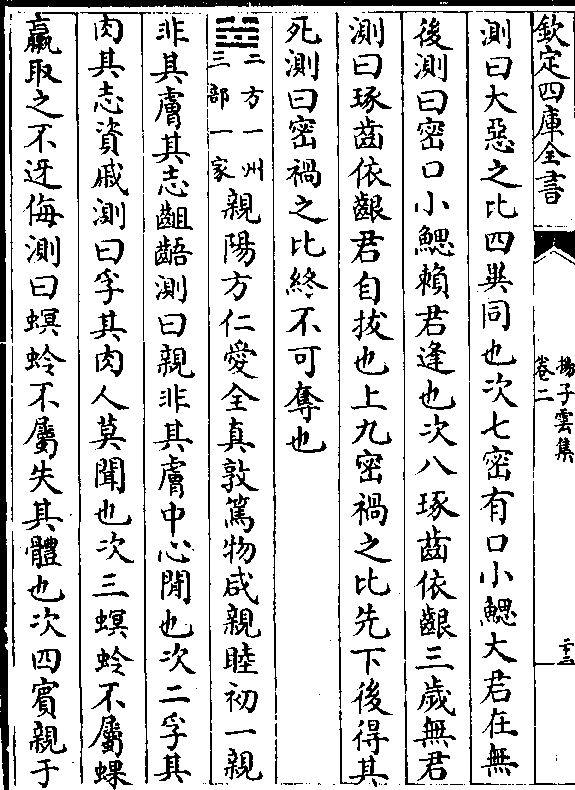 欽定四庫全書
揚子雲集
卷二
測曰大惡之比四與同也次七密有口小鰓大君在無
後測曰密口小鰓賴君逢也次八琢齒依齦三歲無君
測曰琢齒依齦君自拔也上九密禍之比先下後得其
死測曰密禍之比終不可奪也
二方一州
三部一家
親陽方仁愛全真敦篤物咸親睦初一親
非其膚其志齟齬測曰親非其膚中心閒也次二孚其
肉其志資戚測曰孚其肉人莫聞也次三螟蛉不屬蜾
蠃取之不迓侮測曰螟蛉不屬失其體也次四賓親于